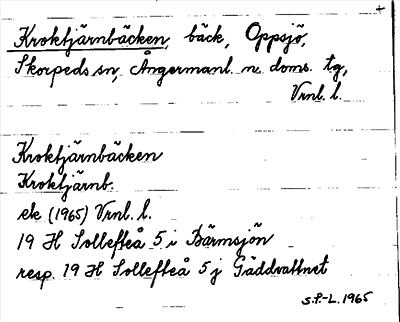 +
Kroktjärnbäcken, bäck, Oppsjö,
Skorpeds sn, Ångermanl. n. doms. tg,
Vrnl. l.
Kroktjärnbäcken
Kroktjärnb.
ek (1965) Vrnl. l.
19 H Sollefteå 5 i Bärmsjön
resp. 19 H Sollefteå 5 j Gäddvattnet
S.P.-L. 1965